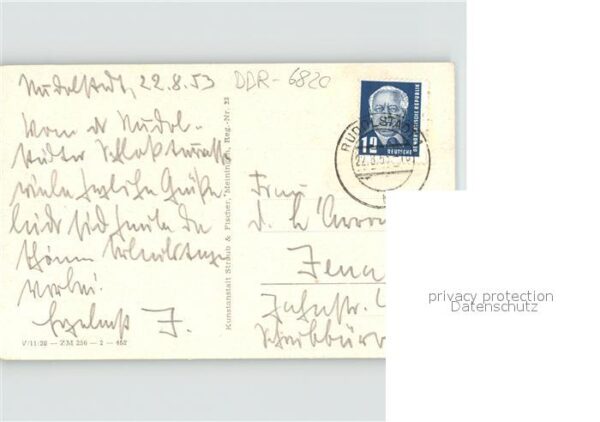 Rudolstadt, 22.8.53
DDR-6820
Vom der Rudol-
städter Schloßterrasse
viele herzliche Grüße
leider sind heute die
schönen Urlaubstage
vorbei.
Herzlichst J.
V/11/28 — ZM 256 — 2 — 452
Kunstanstalt Straub & Fischer, Meiningen, Reg.-Nr. 33
12
DEUTSCHE
DEMOKRATISCHE REPUBLIK
RUDOLSTADT
22.8.53
Frau
Jena
Jahnstr.
privacy protection
Datenschutz